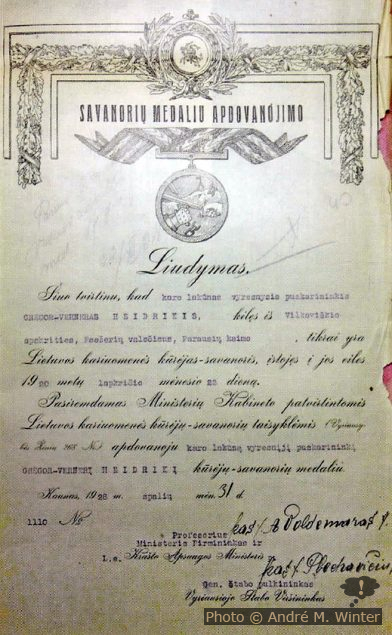 SAVANORIŲ MEDALIU APDOVANOJIMO
Liudymas.
Šiuo tvirtinu, kad karo lakūnas vyresnysis puskarininkis
GREGOR-VERNERAS HEIDRIKIS, kilęs iš Vilkaviškio
apskrities, Paežerių valsčiaus, Parausių kaimo, tikrai yra
Lietuvos kariuomenės kūrėjas-savanoris, įstojęs į jos eiles
1920 metų lapkričio mėnesio 22 dieną.
Pasiremdamas Ministerių Kabineto patvirtintomis
Lietuvos kariuomenės kūrėjų-savanorių taisyklėmis (Vyriausy-
bės Žinių 268 №) apdovanoju karo lakūną vyresnįjį puskarininkį
GREGOR-VERNERĮ HEIDRIKĮ kūrėjų-savanorių medaliu
Kaunas, 1928 m. spalių mėn. 31 d.
1110 №
Profesorius
Ministeris Pirmininkas ir
L.e. Krašto Apsaugos Ministeris
Gen. Štabo pulkininkas
Vyriausiojo Štabo Viršininkas
Photo © André M. Winter